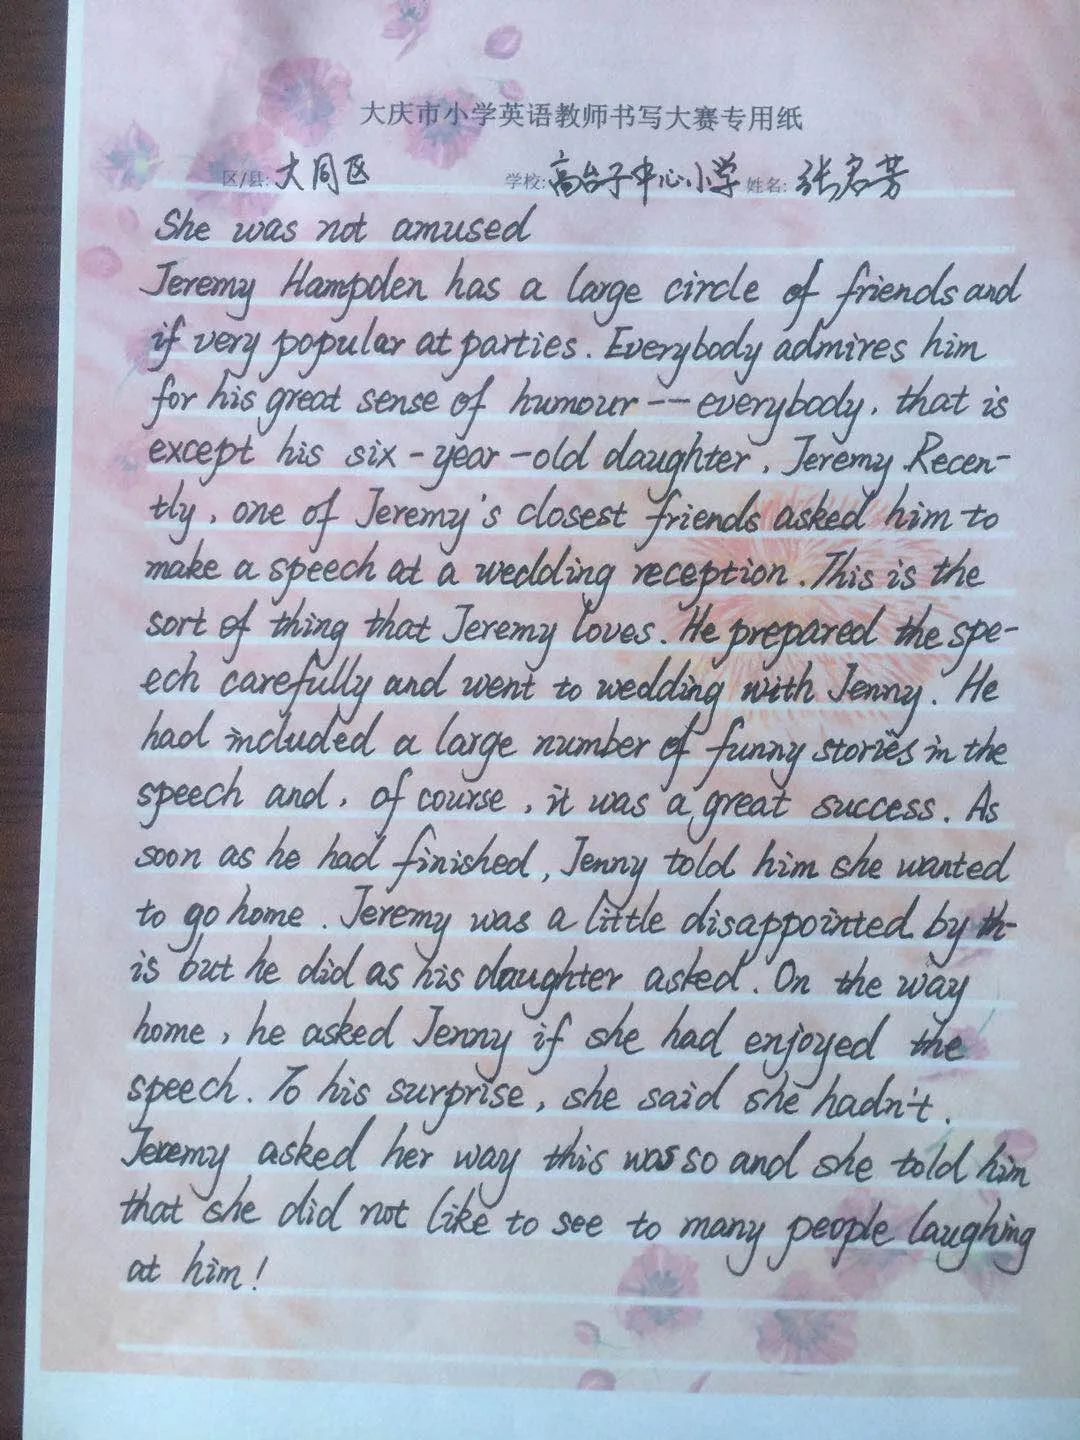 大庆市小学英语教师书写大赛专用纸
区/县: 大同区 学校: 高台子中心小学 姓名: 张君芳
She was not amused
Jeremy Hampden has a large circle of friends and
if very popular at parties. Everybody admires him
for his great sense of humour--everybody, that is
except his six-year-old daughter, Jeremy. Recen-
tly, one of Jeremy's closest friends asked him to
make a speech at a wedding reception. This is the
sort of thing that Jeremy loves. He prepared the spe-
ech carefully and went to wedding with Jenny. He
had included a large number of funny stories in the
speech and, of course, it was a great success. As
soon as he had finished, Jenny told him she wanted
to go home. Jeremy was a little disappointed by th-
is but he did as his daughter asked. On the way
home, he asked Jenny if she had enjoyed the
speech. To his surprise, she said she hadn't.
Jeremy asked her way this was so and she told him
that she did not like to see to many people laughing
at him!